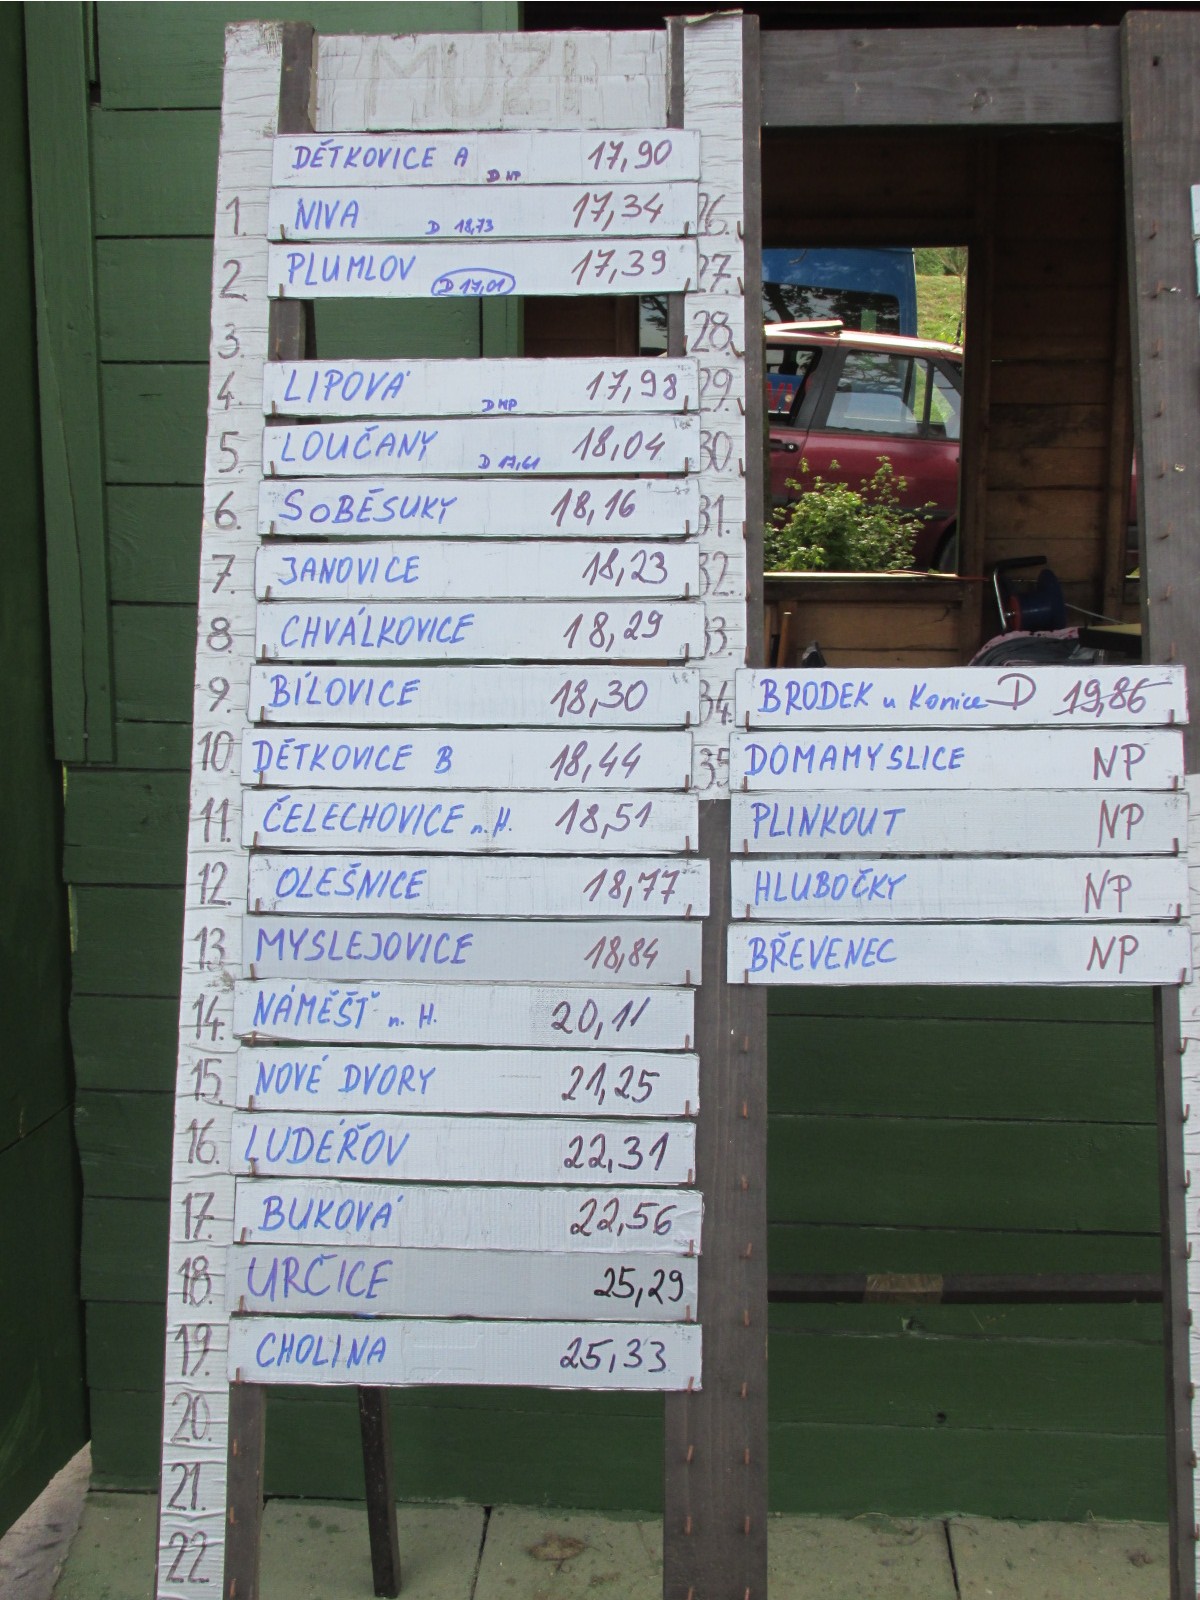 MUŽI
DĚTKOVICE A D NP 17,90
1. NIVA D 18,73 17,34 26.
2. PLUMLOV D 17,01 17,39 27.
3. 28.
4. LIPOVÁ D NP 17,98 29.
5. LOUČANY D 17,61 18,04 30.
6. SOBĚSUKY 18,16 31.
7. JANOVICE 18,23 32.
8. CHVÁLKOVICE 18,29 33.
9. BÍLOVICE 18,30 34. BRODEK u Konice D 19,86
10. DĚTKOVICE B 18,44 35. DOMAMYSLICE NP
11. ČELECHOVICE n.H. 18,51 PLINKOUT NP
12. OLEŠNICE 18,77 HLUBOČKY NP
13. MYSLEJOVICE 18,84 BŘEVENEC NP
14. NÁMĚŠŤ n. H. 20,11
15. NOVÉ DVORY 21,25
16. LUDÉŘOV 22,31
17. BUKOVÁ 22,56
18. URČICE 25,29
19. CHOLINA 25,33
20.
21.
22.